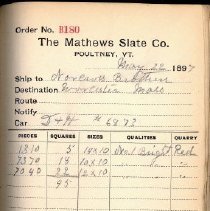 Order No. B180
The Mathews Slate Co.
POULTNEY, VT.
May 22 1897
Ship to Norcross Brothers
Destination Worcester Mass
Route
Notify
Car D+H # 6873
PIECES SQUARES SIZES QUALITIES QUARRY
1310 5 18x10 No 1 Bright Red
7370 18 10x10
7040 22 12x10
45